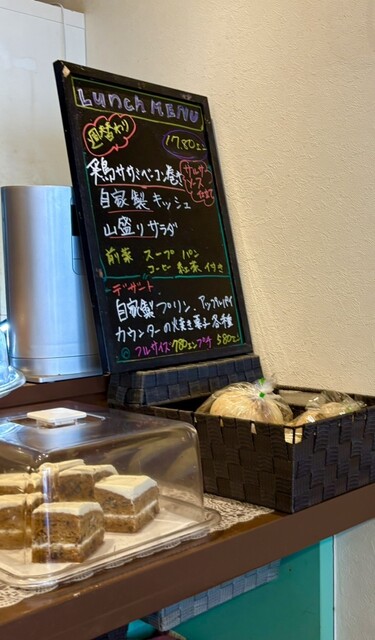 Lunch MENU
週替わり
1780エン
鶏ササミベーコン巻き
サルサソースかけ
自家製キッシュ
山盛りサラダ
前菜 スープ パン
コーヒー 紅茶 付き
デザート
自家製プリン、アップルパイ
カウンターの焼き菓子各種
フルサイズ780エン プチ580エン